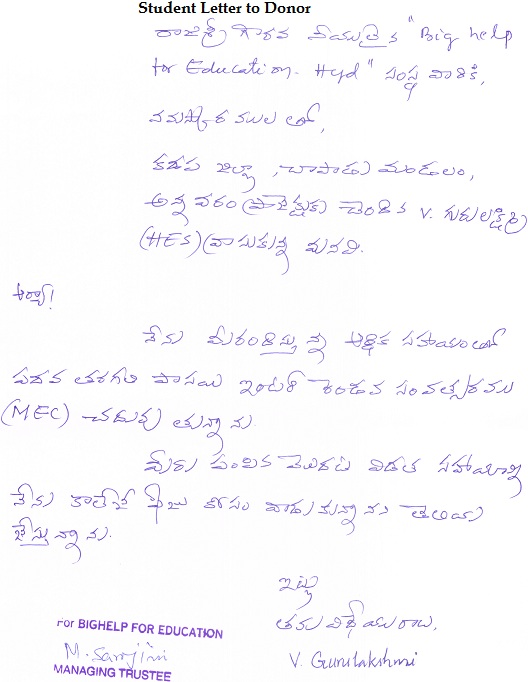 Student Letter to Donor
రాజశ్రీ గౌరవ నీయులైన "Big help
for Education. Hyd" సంస్థ వారికి,
నమస్కారములతో,
కడప జిల్లా, చాపాడు మండలం,
అన్నవరం చెందిన V. గురులక్ష్మి
(HES) వ్రాసుకున్న మనవి.
ఆర్యా!
నేను మీరందిస్తున్న ఆర్థిక సహాయంతో
పదవ తరగతి పాసయి ఇంటర్ రెండవ సంవత్సరము
(MEC) చదువుతున్నాను.
మీరు పంపిన మొదట విడత సహాయాన్ని
నేను కాలేజి ఫీజు కోసం వాడుకున్నానను తెలియ
జేస్తున్నాను.
ఇట్లు
తమ విధేయురాలు,
V. Gurulakshmi
For BIGHELP FOR EDUCATION
M. Sarojini
MANAGING TRUSTEE